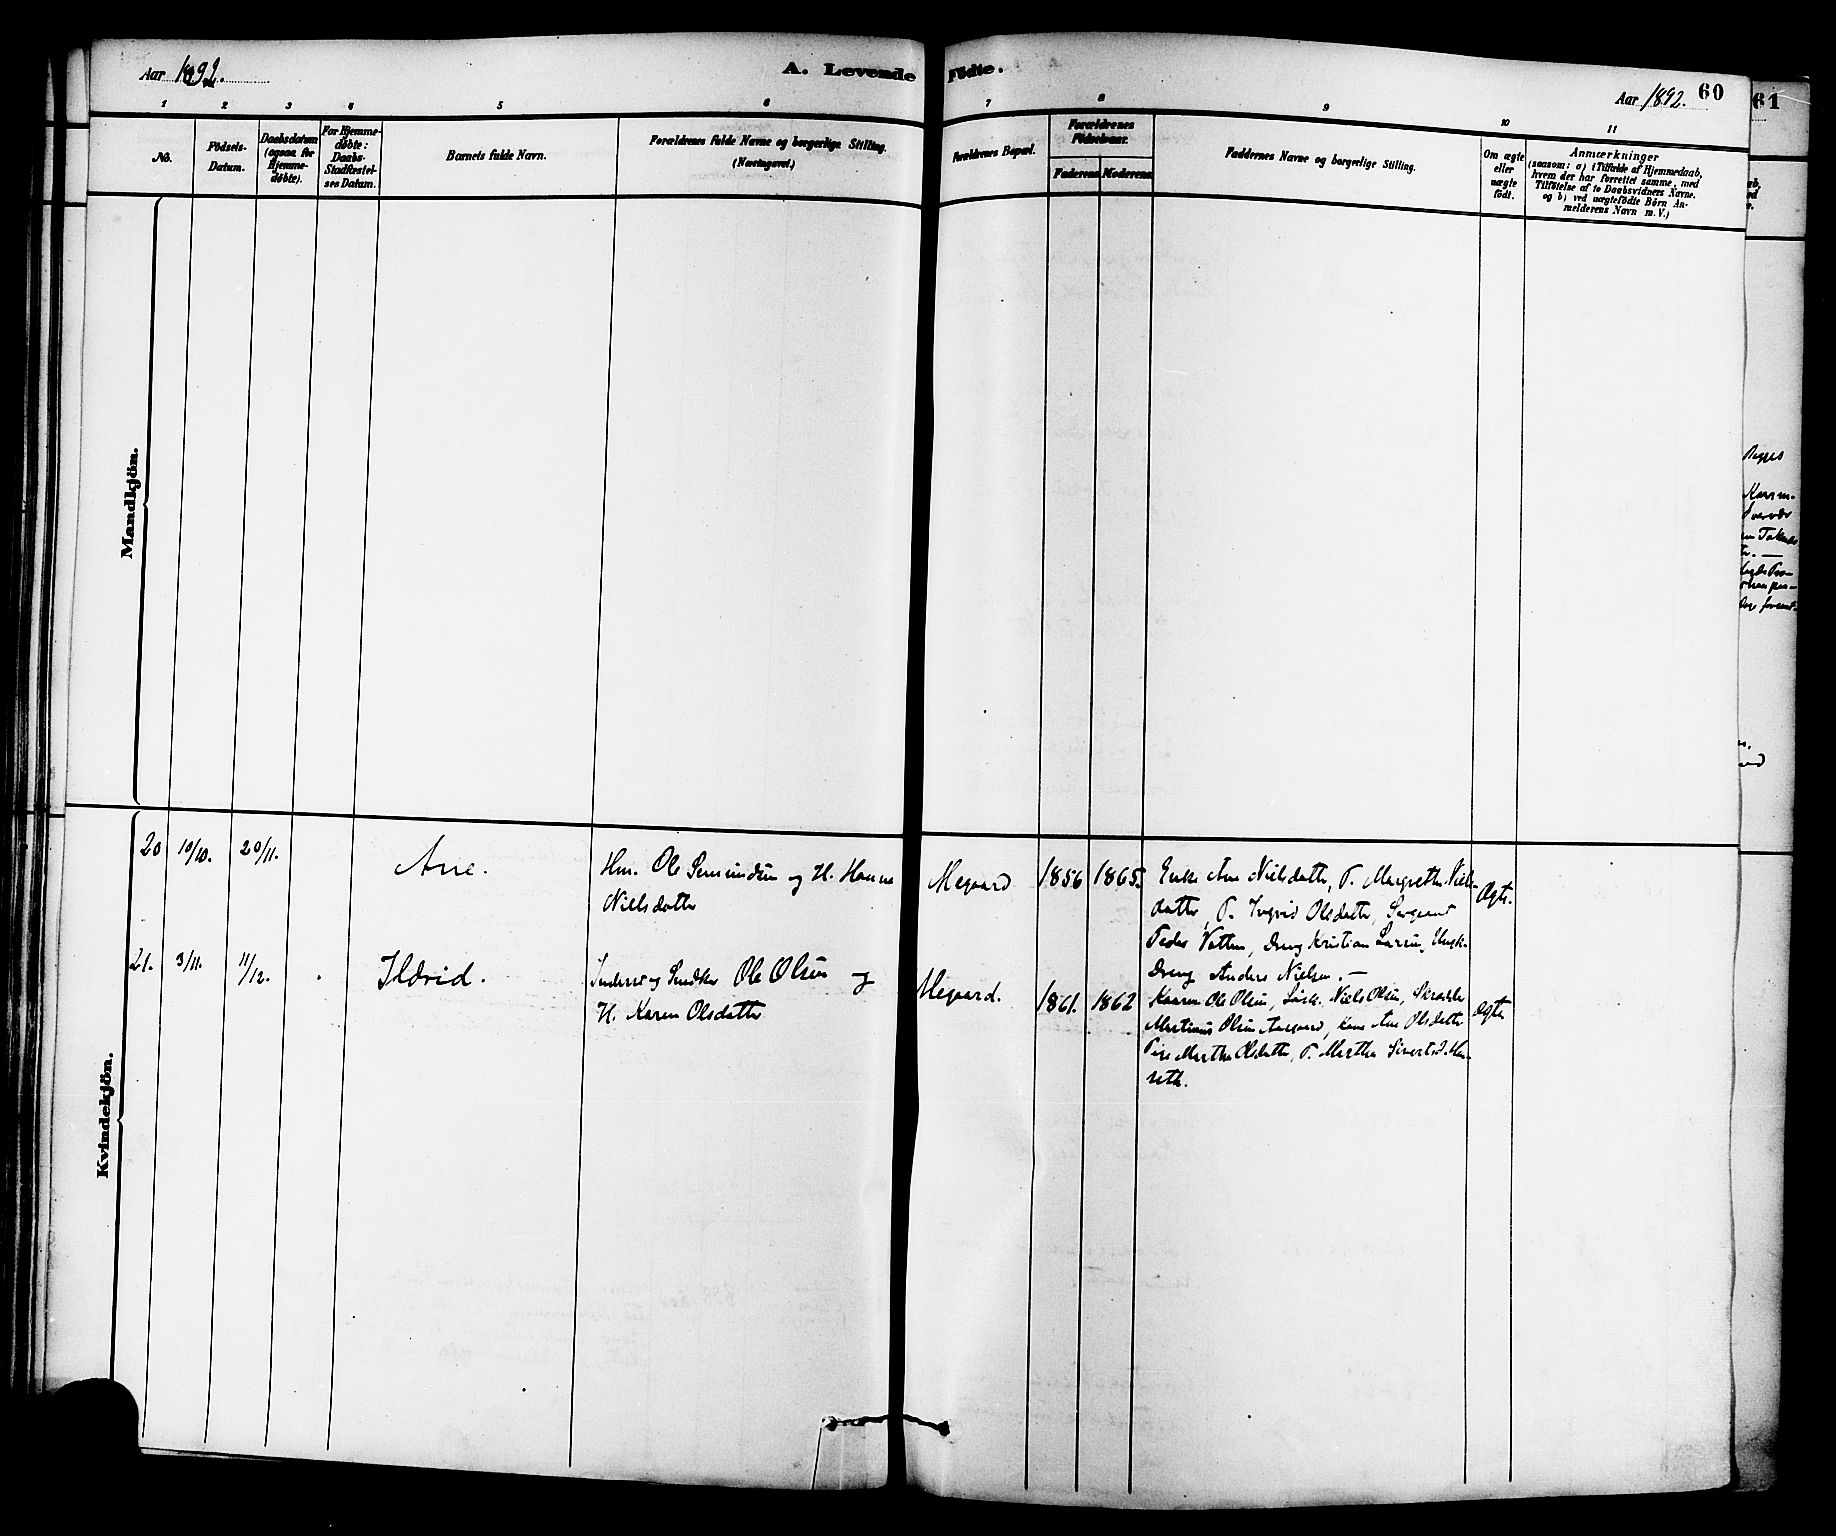 Aar 1892.
A. Levende Fødte.
Aar 1892. 60
61
1 2 3 4 5 6 7 8 9 10 11
No.
Fødsels-
Datum.
Daabsdatum
(ogsaa for
Hjemme-
døbte).
For Hjemme-
døbte:
Daabs-
Stadfæstel-
ses Datum.
Barnets fulde Navn.
Forældrenes fulde Navne og borgerlige Stilling.
(Næringsvei.)
Forældrenes Bopæl.
Forældrenes
Fødselsaar.
Faderens Moderens
Faddernes Navne og borgerlige Stilling.
Om ægte
eller
uægte
født.
Anmærkninger
(saasom: a) i Tilfælde af Hjemmedaab,
hvem der har forrettet samme, med
Tilføielse af to Daabsvidners Navne,
og b) ved uægtefødte Børn An-
melderens Navn m. V.)
Mandkjön.
Kvindekjön.
20 10/10. 20/11. Ane.
Hm. Ole og H. Hanna
Nielsdatter
Megaard 1856 1865.
Enke Ane Nielsdatter, P. Margrethe Niels-
datter, P. Ingrid Olsdatter, Sergeant
Peder Vatten, Dreng Kristian Larsen, Ungk.
Dreng Anders Nielsen. —
Ægte.
21. 3/11. 11/12. Ildrid.
Inderst og Snedker Ole Olsen og
H. Karen Olsdatter
Megaard. 1861. 1862
Kaarm. Ole Olsen, Niels Olsen, Skrædder
Martinus Olsen Aasgaard, Kone Ane Olsdatter
Pige Marthe Olsdatter, P. Marthe Sivertsd.
Ægte